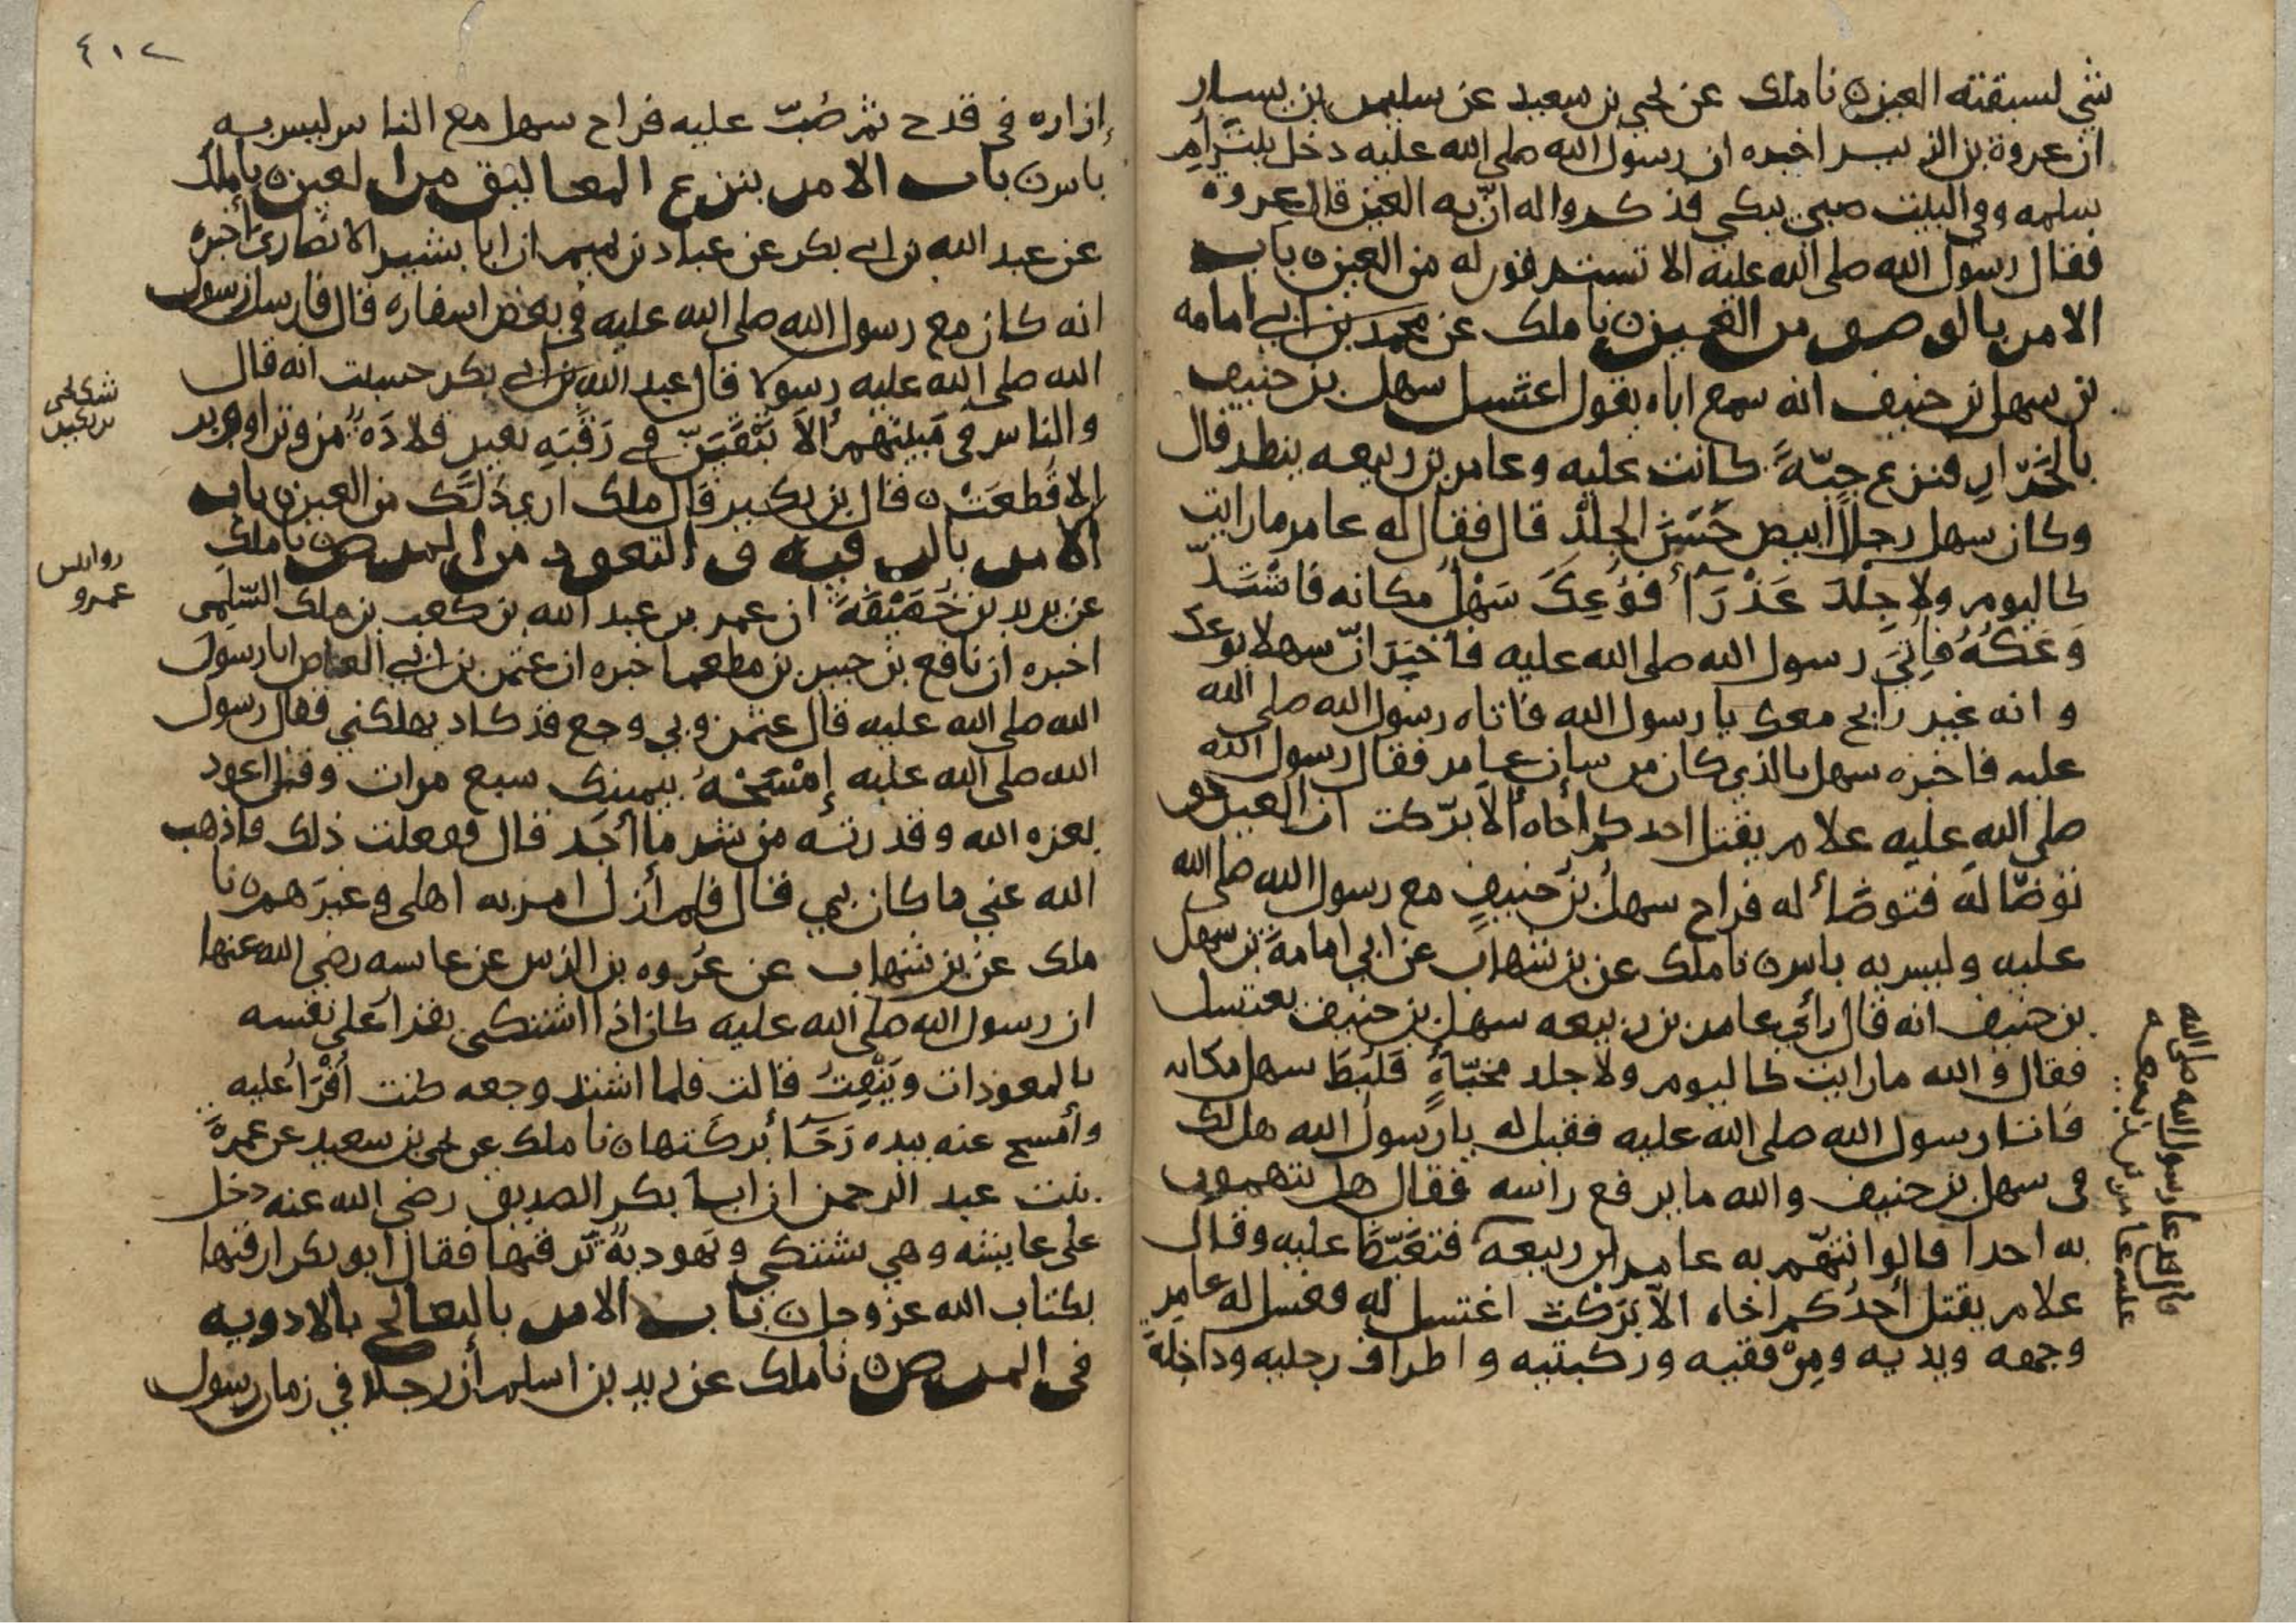 شي لسبقته العين ٥ نا ملك عن يحيى بن سعيد عن سليمن بن يسار
ان عروة بن الزبير اخبره ان رسول الله صلى الله عليه دخل بيت ام
سلمه وفي البيت صبي يبكي فذكروا له ان به العين قال عروه
فقال رسول الله صلى الله عليه الا تسترقون له من العين ٥ باب
الامر بالوضو من العين ٥ نا ملك عن محمد بن ابي امامه
بن سهل بن حنيف انه سمع اباه يقول اغتسل سهل بن حنيف
بالخَرّارِ فنزع جبّةً كانت عليه وعامر بن ربيعه ينظر قال
وكان سهل رجلا ابيض حَسَنَ الجلْدِ قال فقال له عامر ما رايت
كاليوم ولا جِلْدَ عَذْرَآءَ فَوُعِكَ سَهْلٌ مكانه فاشْتَدّ
وَعَكُهُ فأُتِيَ رسول الله صلى الله عليه فاخبِرَ انّ سهلا يوعك
وانه غير رايح معك يا رسول الله فاتاه رسول الله صلى الله
عليه فاخبره سهل بالذي كان من شان عامر فقال رسول الله
صلى الله عليه علام يقتل احدكم أخاه ألا برّكت ان العين حق
توضّا له فتوضّأ له فراح سهلُ بنُ حنيفٍ مع رسول الله صلى الله
عليه وليس به باس ٥ نا ملك عن بن شهاب عن ابي امامة بن سهل
بن حنيف انه قال رأى عامر بن ربيعه سهل بن حنيف يغتسل
فقال والله ما رايت كاليوم ولا جلد مخبّاةٍ فَلُبِطَ سهل مكانه
فاتىا رسول الله صلى الله عليه فقيل له يا رسول الله هل لك
في سهل بن حنيف والله ما يرفع راسه فقال هل تتهمون
به احدا قالوا نتّهم به عامر بن ربيعة فتغيّظ عليه وقال
علام يقتل أحدُكم اخاه الّا بَرّكْتَ اغتسل له فغسل له عامر
وجهه ويديه ومِرْفقيه وركبتيه واطراف رجليه وداخِلةَ
قال فدعا رسول الله صلى الله
عليه عامر بن ربيعه
٤١٢
إزاره في قدح ثم صُبّ عليه فراح سهل مع الناس ليس به
باس ٥ باب الامر بنزع المعاليق من العين ٥ نا ملك
عن عبد الله بن ابي بكر عن عباد بن تميم ان ابا بشير الانصاري أخبره
انه كان مع رسول الله صلى الله عليه في بعض اسفاره قال فارسل رسول
الله صلى الله عليه رسولا قال عبد الله بن ابي بكر حسبت انه قال
والناس في مَبيتهم ألاّ يَبْقَيَنّ في رَقَبَةِ بَعيرٍ قلادَةٌ من وتر او وبر
الا قُطِعَتْ ٥ قال بن بكير قال ملك ارى ذلك من العين ٥ باب
الامر بالرقيه و التعوذ من المرض ٥ نا ملك
عن يزيد بن خُصَيْفَةَ ان عمر بن عبد الله بن كعب بن ملك السّلَمِي
اخبره ان نافع بن جبير بن مطعم اخبره ان عثمن بن ابي العاص اتا رسول
الله صلى الله عليه قال عثمن وبي وجع قد كاد يهلكني فقال رسول
الله صلى الله عليه إمْسَحْهُ بيمينك سبع مرات وقل اعوذ
بعزه الله وقدرته من شر ما أجد قال ففعلت ذلك فاذهب
الله عني ما كان بي فقال فلم أزل امر به اهلي وغيرَهم ٥ نا
ملك عن بن شهاب عن عُروه بن الزبير عن عايشه رضي الله عنها
ان رسول الله صلى الله عليه كان اذا اشتكى يقرأ على نفسه
بالمعوذات ويَنْفِثُ قالت فلما اشتد وجعه كنت أقْرَأُ عليه
وأمسح عنه بيده رَجَآءَ بركَتها ٥ نا ملك عن يحيى بن سعيد عن عمرةَ
بنت عبد الرحمن ان ابا بكر الصديق رضي الله عنه دخل
على عايشه وهي تشتكي ويَهودِيةٌ تَرقيها فقال ابو بكر ارقيها
بكتاب الله عز وجل ٥ باب الامر بالتعالج بالادويه
في المرض ٥ نا ملك عن زيد بن اسلم أن رجلا في زمان رسول
شك يحيى
بن بكير
عمرو